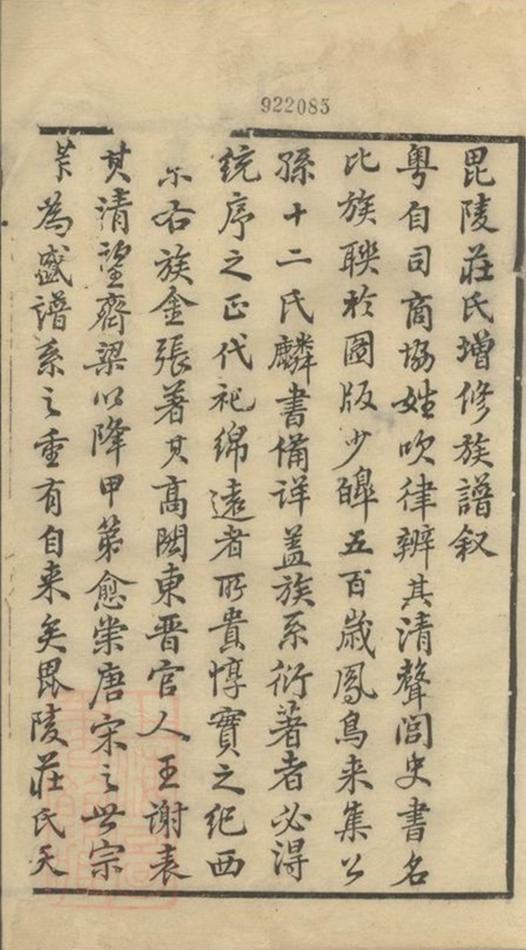 922085
毘陵莊氏增修族譜叙
粵自司商協姓吹律辨其清聲閭史書名
比族聯於圖版少皞五百歲鳳鳥来集公
孫十二氏麟書備詳蓋族系衍著者必得
統序之正代祀綿遠者所貴惇實之紀西
京右族金張著其高閥東晋官人王謝表
其清望齊梁以降甲第愈崇唐宋之世宗
為盛譜系之重有自来矣毘陵莊氏天